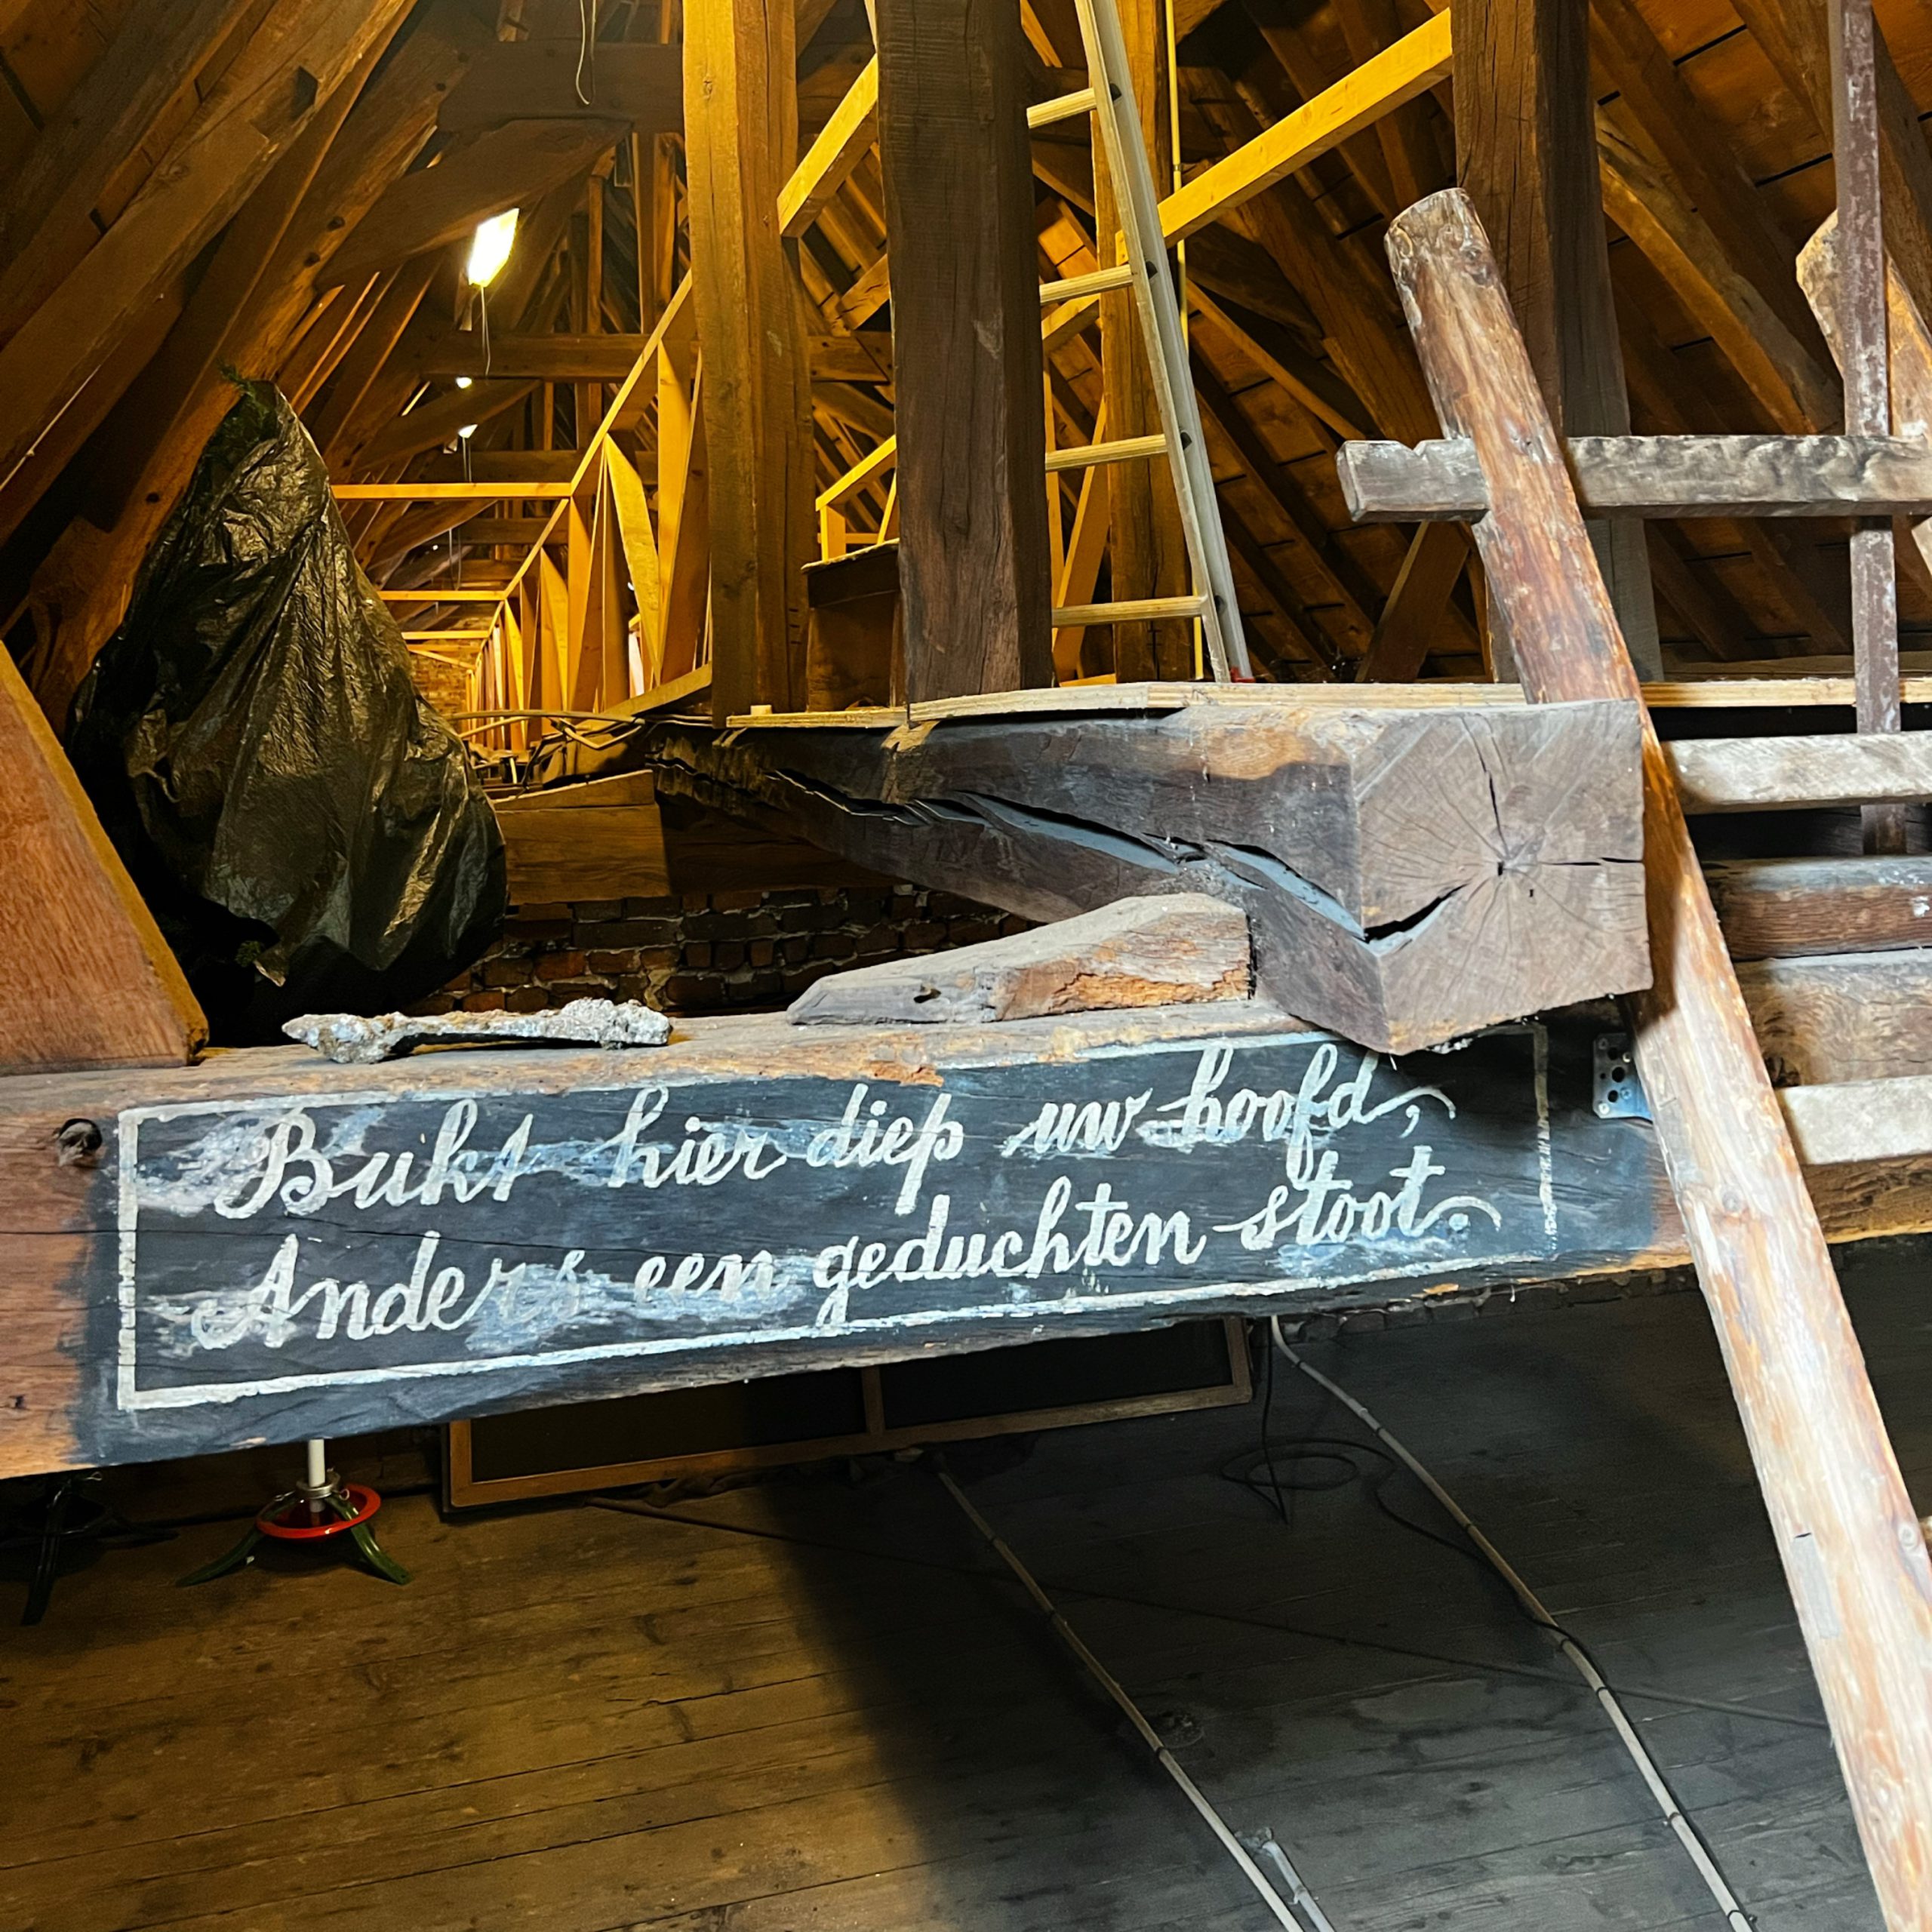 Bukt hier diep uw hoofd,
Anders een geduchten stoot.